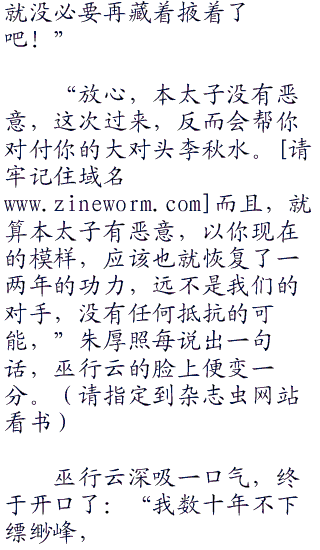 就没必要再藏着掖着了
吧！”
“放心，本太子没有恶
意，这次过来，反而会帮你
对付你的大对头李秋水。[请
牢记住域名
www.zineworm.com]而且，就
算本太子有恶意，以你现在
的模样，应该也就恢复了一
两年的功力，远不是我们的
对手，没有任何抵抗的可
能，”朱厚照每说出一句
话，巫行云的脸上便变一
分。（请指定到杂志虫网站
看书）
巫行云深吸一口气，终
于开口了：“我数十年不下
缥缈峰，